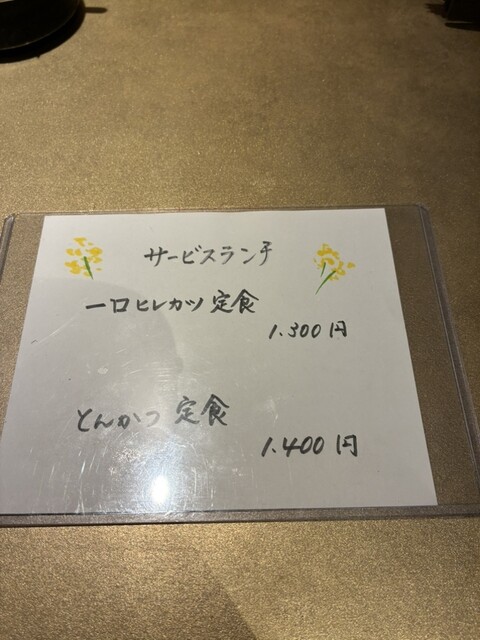 サービスランチ
一口ヒレカツ定食
1.300円
とんかつ定食
1.400円